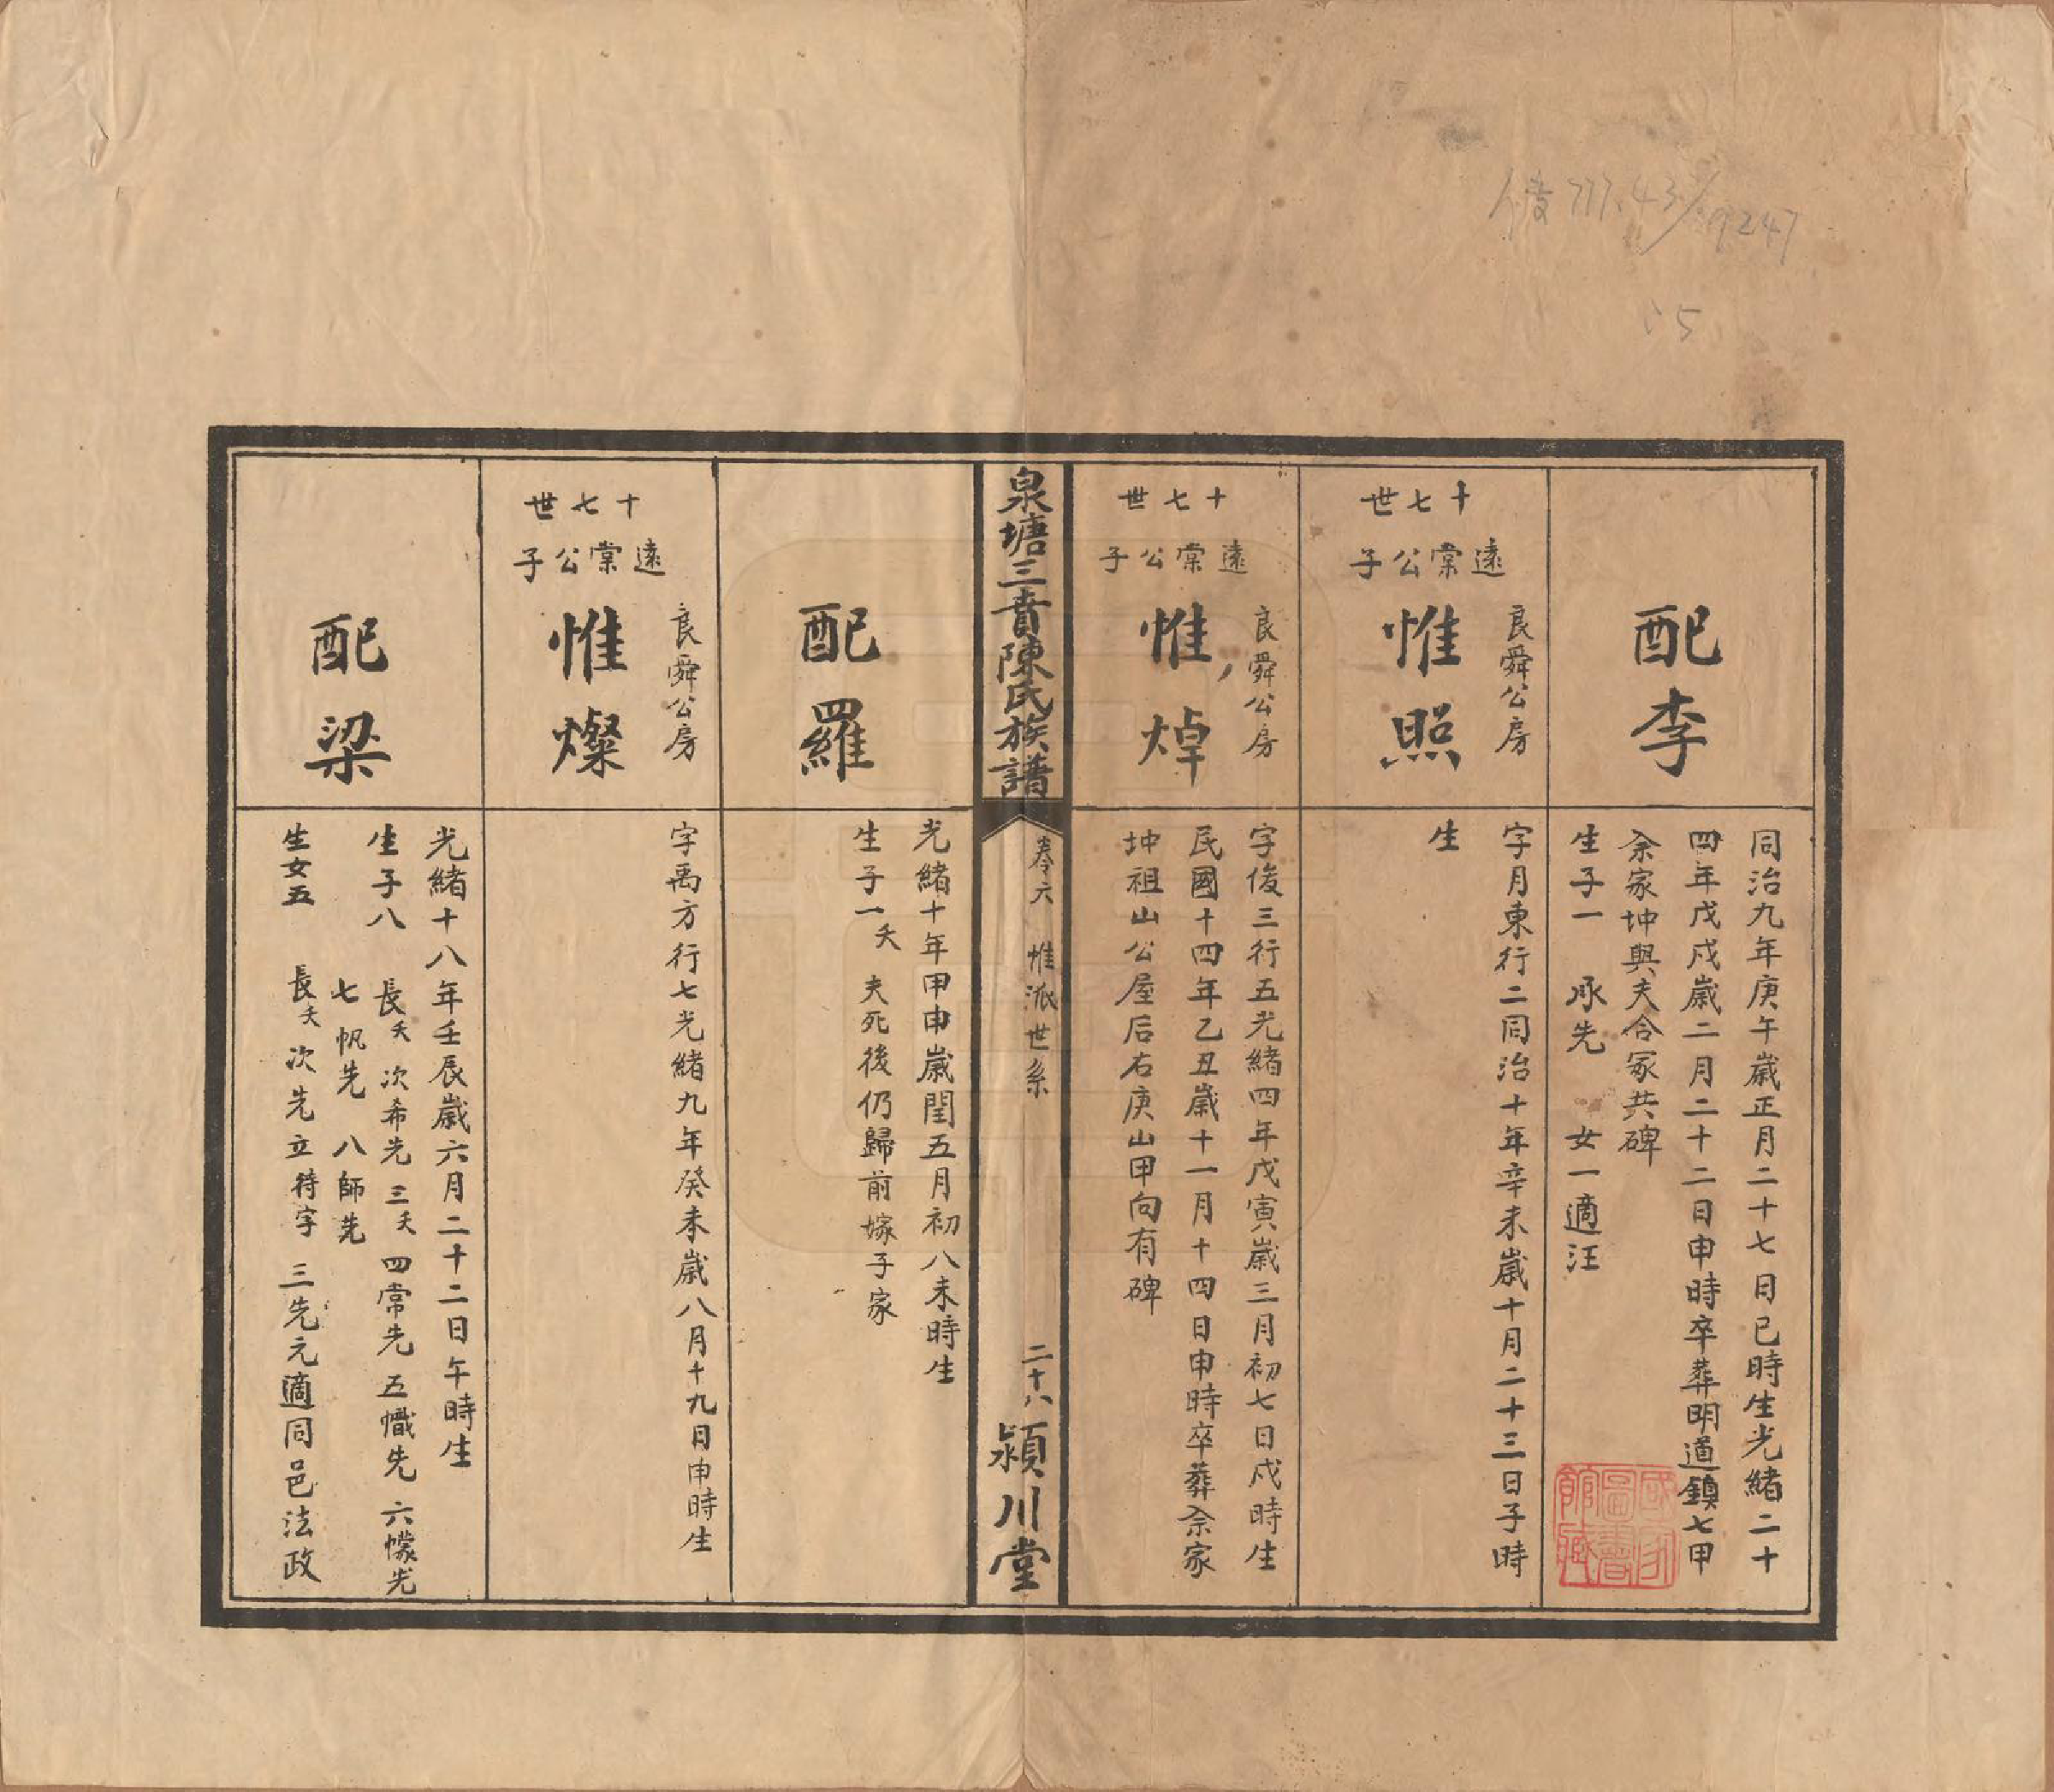 配李
同治九年庚午歲正月二十七日巳時生光緒二十
四年戊戌歲二月二十二日申時卒葬明道鎮七甲
余家坤與夫合冢共碑
生子一 承先 女一適汪
十七世
遠棠公子
良舜公房
惟照
字月東行二同治十年辛未歲十月二十三日子時
生
十七世
遠棠公子
良舜公房
惟焯
字俊三行五光緒四年戊寅歲三月初七日戌時生
民國十四年乙丑歲十一月十四日申時卒葬余家
坤祖山公屋后右庚山甲向有碑
泉塘三賁陳氏族譜
卷六 惟派世系
二十八
潁川堂
配羅
光緒十年甲申歲閏五月初八未時生
生子一夭 夫死後仍歸前嫁子家
十七世
遠棠公子
良舜公房
惟燦
字禹方行七光緒九年癸未歲八月十九日申時生
配梁
光緒十八年壬辰歲六月二十二日午時生
生子八 長夭 次希先 三夭 四常先 五幟先 六幪先
七帆先 八師先
生女五 長夭 次先立待字 三先元適同邑法政
國家圖書館藏